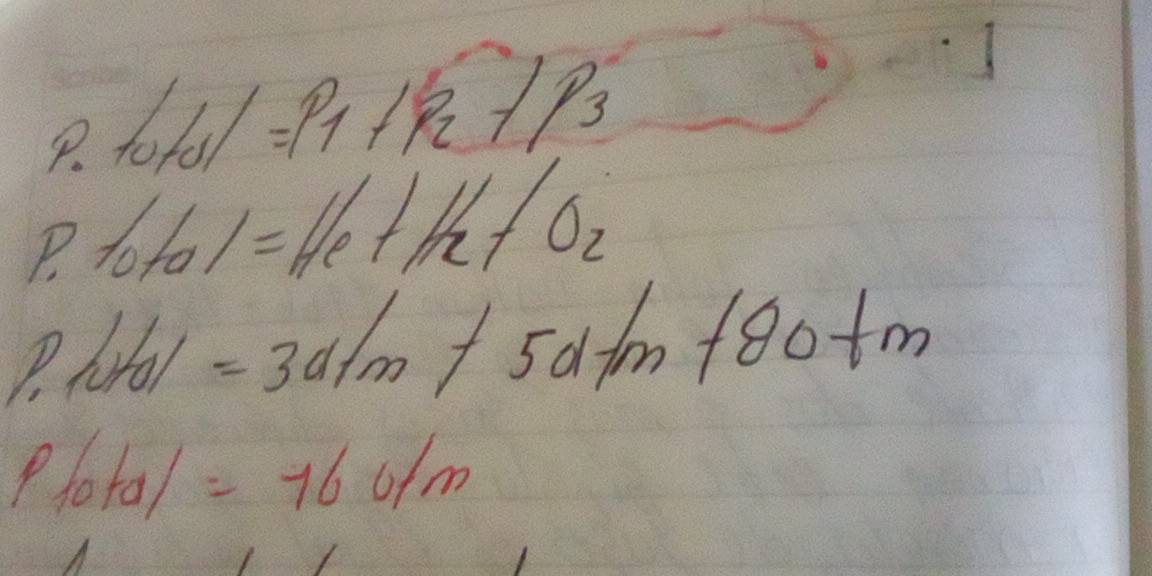 P. total = P1 + P2 + P3
P. total = He + H2 + O2
P. total = 3atm + 5atm + 8atm
P total = 16 atm